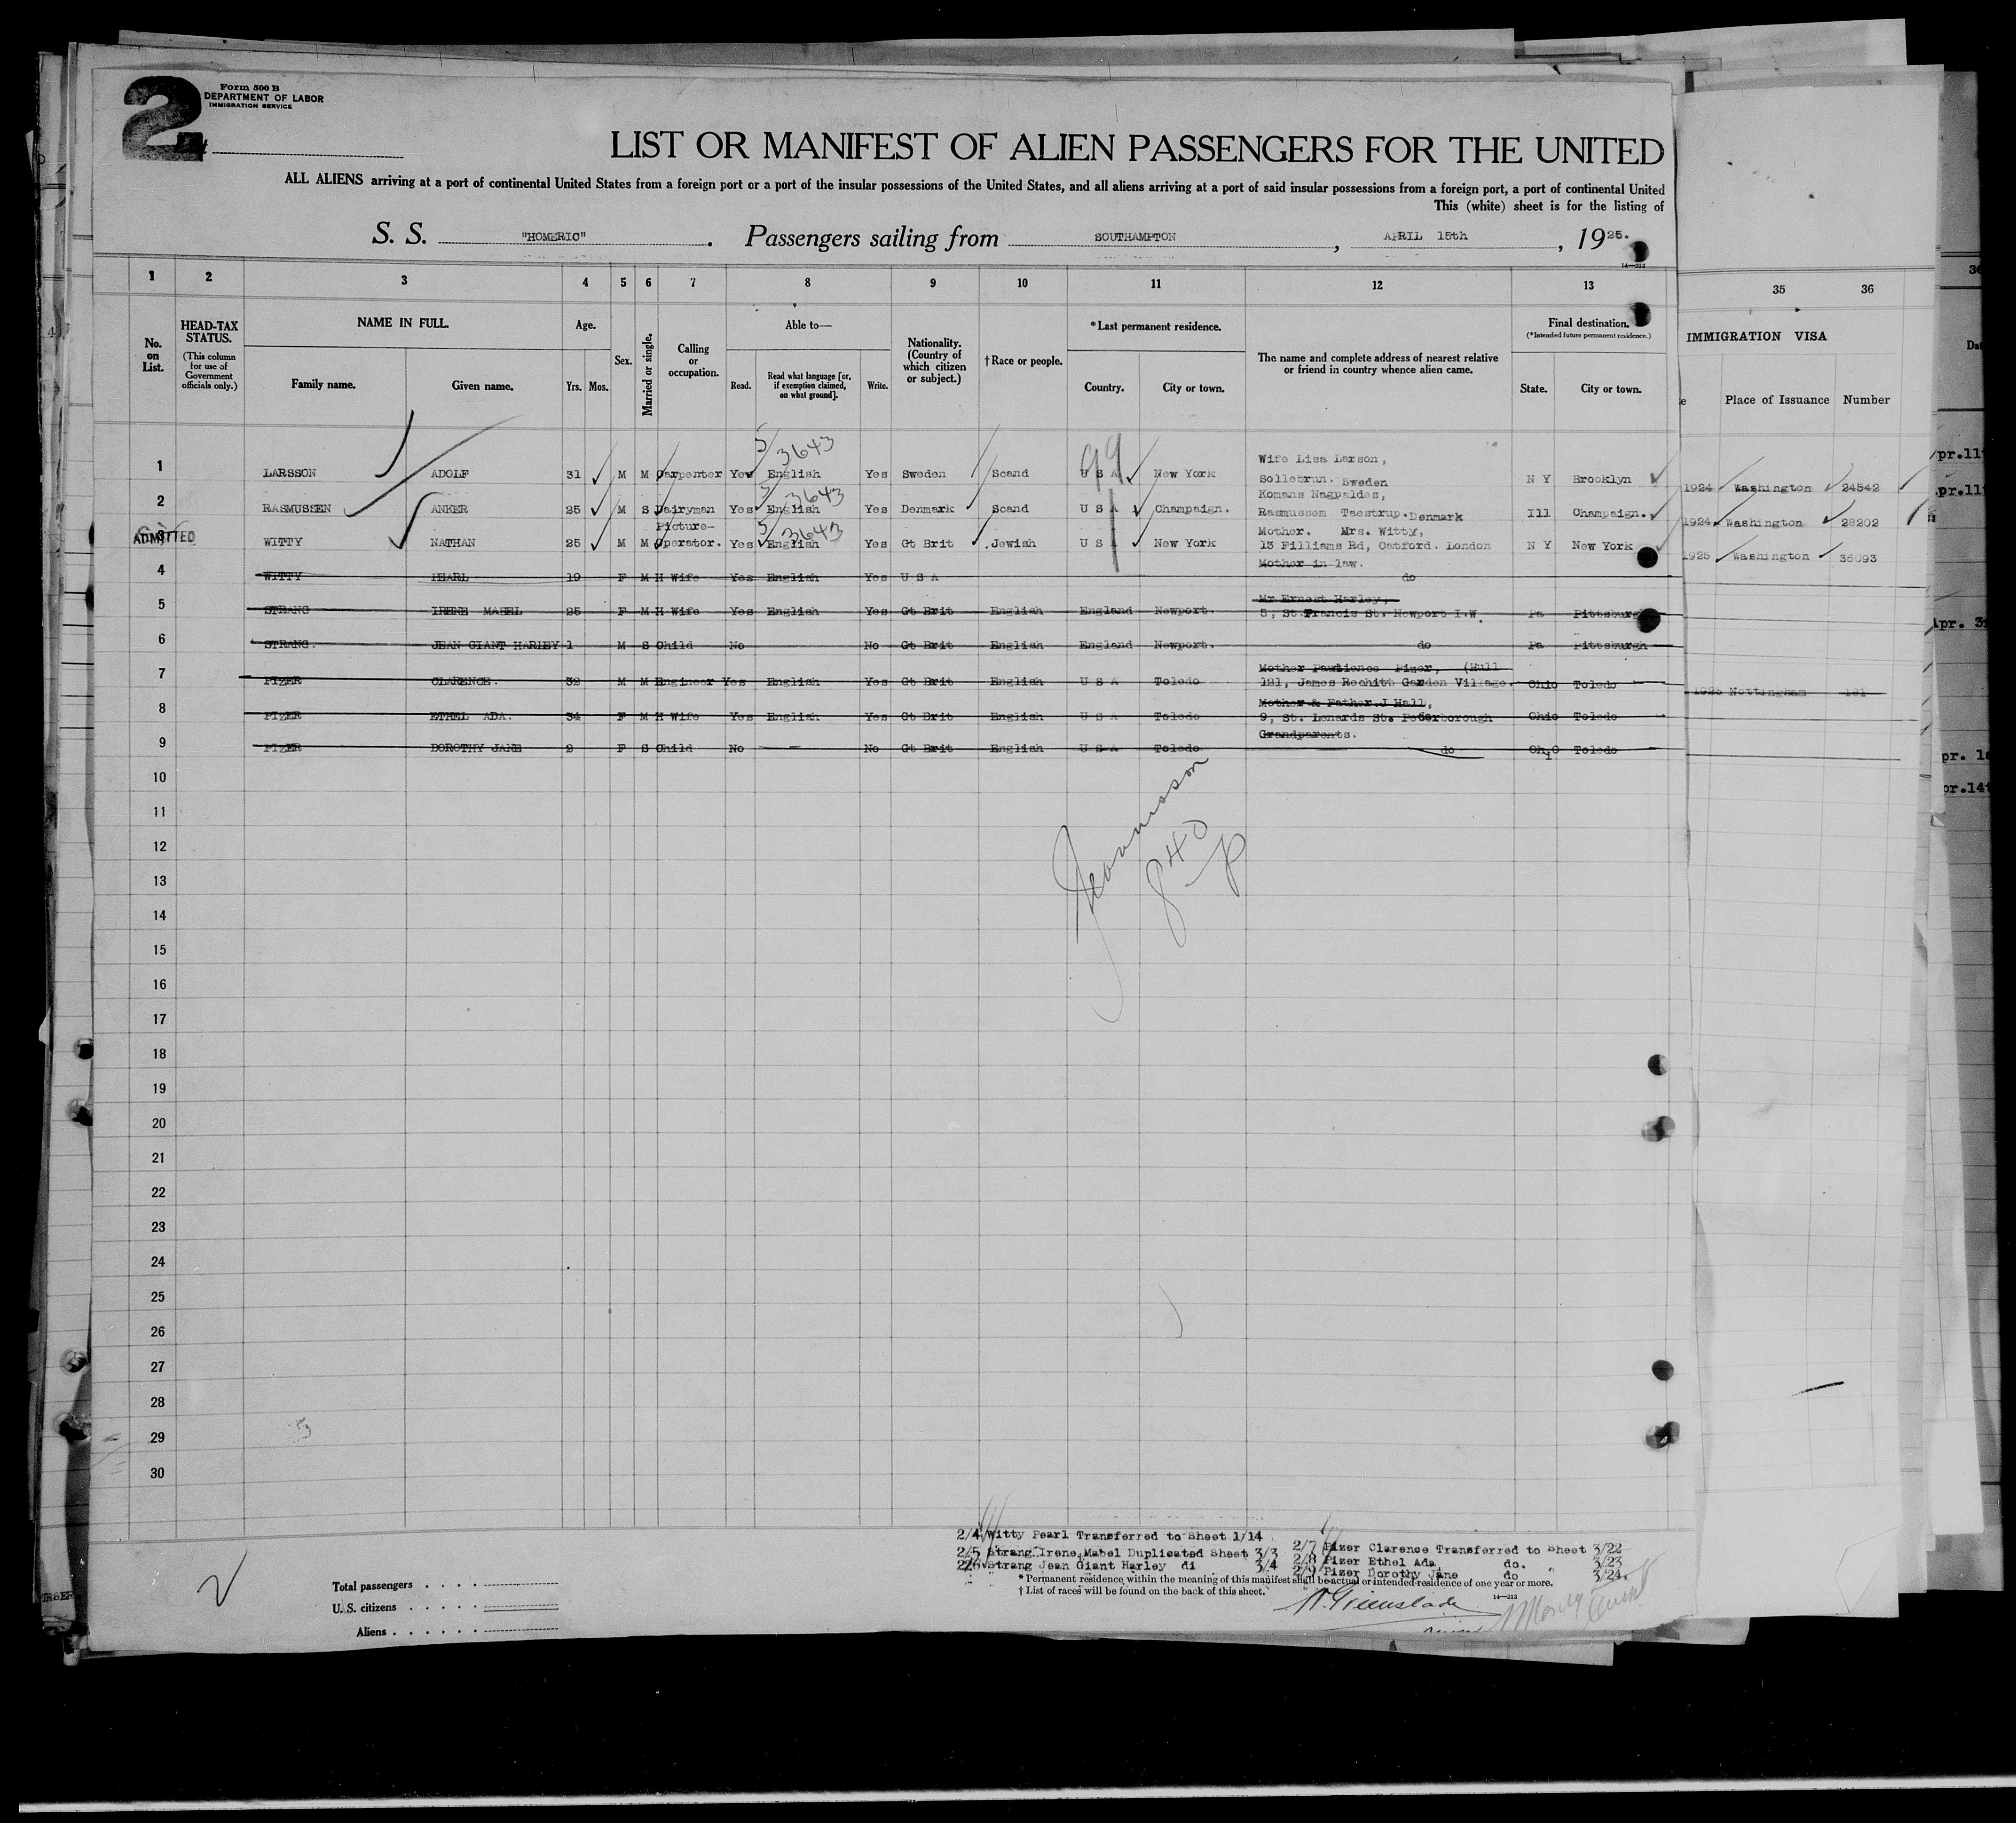 2
Form 500 B
DEPARTMENT OF LABOR
IMMIGRATION SERVICE
LIST OR MANIFEST OF ALIEN PASSENGERS FOR THE UNITED
ALL ALIENS arriving at a port of continental United States from a foreign port or a port of the insular possessions of the United States, and all aliens arriving at a port of said insular possessions from a foreign port, a port of continental United
This (white) sheet is for the listing of
S. S. "HOMERIC" . Passengers sailing from SOUTHAMPTON , APRIL 15th , 1925.
14—213
1 2 3 4 5 6 7 8 9 10 11 12 13 35 36
No. on List.
HEAD-TAX STATUS.
(This column for use of Government officials only.)
NAME IN FULL.
Family name. Given name.
Age.
Yrs. Mos.
Sex.
Married or single.
Calling or occupation.
Able to—
Read. Read what language [or, if exemption claimed, on what ground]. Write.
Nationality. (Country of which citizen or subject.)
† Race or people.
* Last permanent residence.
Country. City or town.
The name and complete address of nearest relative or friend in country whence alien came.
Final destination.
(*Intended future permanent residence.)
State. City or town.
IMMIGRATION VISA
Place of Issuance Number
3643
99
1 LARSSON ADOLF 31 M M Carpenter Yes English Yes Sweden Scand U S A New York Wife Lisa Larson, Sollebrun. Sweden N Y Brooklyn 1924 Washington 24542
3643
2 RASMUSSEN ANKER 25 M S Dairyman Yes English Yes Denmark Scand U S A Champaign. Komans Nagpaldes, Rasmussem Taestrup. Denmark Ill Champaign. 1924 Washington 28202
3643
ADMITTED WITTY NATHAN 25 M M Picture-Operator. Yes English Yes Gt Brit Jewish U S A New York Mother. Mrs. Witty, 13 Filliams Rd, Catford. London N Y New York 1925 Washington 36093
4 WITTY PEARL 19 F M H Wife Yes English Yes U S A Mother in law. do
5 STRANG IRENE MABEL 25 F M H Wife Yes English Yes Gt Brit English England Newport. Mr Ernest Harley, 5, St.Francis St. Newport I.W. Pa Pittsburgh
6 STRANG. JEAN GIANT HARLEY 1 M S Child No No Gt Brit English England Newport. do Pa Pittsburgh
7 PIZER CLARENCE. 32 M M Engineer Yes English Yes Gt Brit English U S A Toledo Mother Pautience Pizer, (Hull 121, James Reckitt Garden Village. Ohio Toledo 1925 Nottingham 181
8 PIZER ETHEL ADA. 34 F M H Wife Yes English Yes Gt Brit English U S A Toledo Mother & Father.J Hall, 9, St. Lenards St. Peterborough Ohio Toledo
9 PIZER DOROTHY JANE 2 F S Child No — No Gt Brit English U S A Toledo Grandparents. do Ohio Toledo
10
11
12
13
14
15
16
17
18
19
20
21
22
23
24
25
26
27
28
29
30
840
2/4 Witty Pearl Transferred to Sheet 1/14
2/5 Strang Irene Mabel Duplicated Sheet 3/3
2/6 Strang Jean Giant Harley di 3/4
2/7 Pizer Clarence Transferred to Sheet 3/22
2/8 Pizer Ethel Ada do. 3/23
2/9 Pizer Dorothy Jane do " 3/24.
* Permanent residence within the meaning of this manifest shall be actual or intended residence of one year or more.
† List of races will be found on the back of this sheet.
14—213
Total passengers
U. S. citizens
Aliens